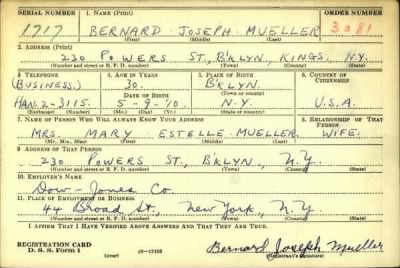 SERIAL NUMBER 1. NAME (Print) ORDER NUMBER
1717 BERNARD JOSEPH MUELLER 3081
(First) (Middle) (Last)
2. ADDRESS (Print)
230 POWERS ST., B'KLYN, KINGS, N.Y.
(Number and street or R. F. D. number) (Town) (County) (State)
3. TELEPHONE 4. AGE IN YEARS 5. PLACE OF BIRTH 6. COUNTRY OF CITIZENSHIP
(BUSINESS.) 30. B'KLYN.
DATE OF BIRTH (Town or county)
HAN-2-3115. 5-9-'10. N.Y. U.S.A.
(Mo.) (Day) (Yr.) (State or country)
7. NAME OF PERSON WHO WILL ALWAYS KNOW YOUR ADDRESS 8. RELATIONSHIP OF THAT PERSON
MRS. MARY ESTELLE MUELLER. WIFE.
(Mr., Mrs., Miss) (First) (Middle) (Last)
9. ADDRESS OF THAT PERSON
230 POWERS ST., B'KLYN, N.Y
(Number and street or R. F. D. number) (Town) (County) (State)
10. EMPLOYER'S NAME
Dow-Jones Co.
11. PLACE OF EMPLOYMENT OR BUSINESS
44 Broad St., New York, N.Y.
(Number and street or R. F. D. number) (Town) (County) (State)
I AFFIRM THAT I HAVE VERIFIED ABOVE ANSWERS AND THAT THEY ARE TRUE.
REGISTRATION CARD
D. S. S. Form 1 (over) Bernard Joseph Mueller
(Registrant's signature)